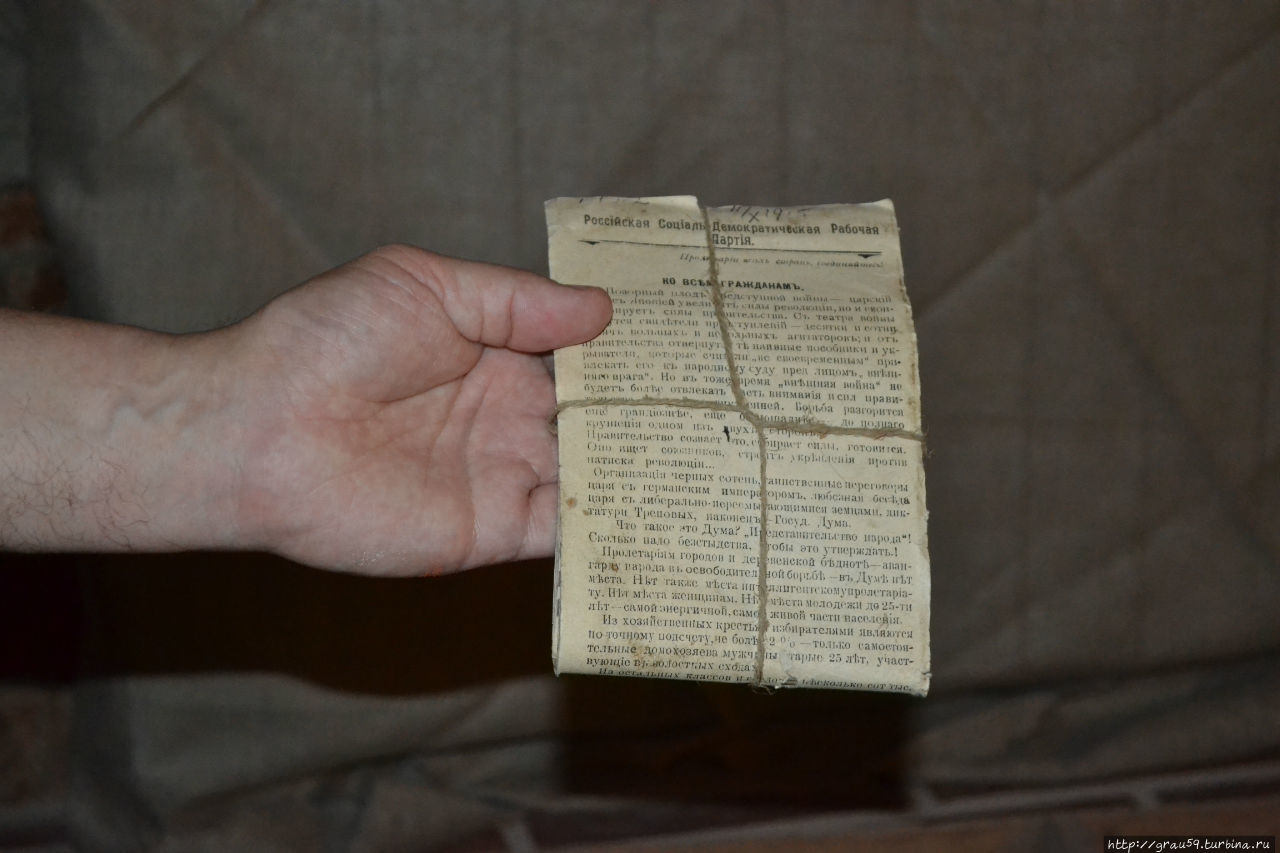 Россійская Соціаль Демократическая Рабочая
Партія.
Пролетаріи всѣхъ странъ, соединяйтесь!
КО ВСѢМЪ ГРАЖДАНАМЪ.
Позорный плодъ войны — царскій
Японіей силы революціи, но и
силы правительства. Съ театра войны
свидѣтели преступленій — десятки и сотни
вольныхъ и агитаторовъ; и отъ
правительства отвернут тѣ наивные пособники и ук-
рыватели, которые считали „не своевременнымъ" при-
влекать его къ народному суду пред лицомъ „внѣш-
няго врага". Но въ тоже время „внѣшняя война" не
будетъ болѣе отвлекать часть вниманія и сил прави-
Борьба разгорится
еще грандіознѣе, еще до полнаго
крушенія одном изъ двухъ сторонъ.
Правительство созвает это, собирает силы, готовится.
Оно ищет союзников, строитъ укрѣпленія против
натиска революціи...
Организація черных сотень, таинственные переговоры
царя съ германским императором, любезная бесѣда
царя съ либерально- земцами, дик-
татура Треповых, наконецъ Госуд. Дума.
Что такое это Дума? „Представительство народа"!
Сколько надо безстыдства, чтобы это утверждать!
Пролетаріям городов и деревенской бѣднотѣ — аван-
гарду народа въ освободительной борьбѣ — въ Думѣ нѣт
мѣста. Нѣт также мѣста интеллигентскому пролетаріа-
ту. Нѣт мѣста женщинам. Нѣт мѣста молодежи до 25-ти
лѣт — самой энергичной, самой живой части населенія.
Из хозяйственных крестьян избирателями являются
по точному подсчету, не болѣе 2 % — только самостоя-
тельные домохозяева мужчины старые 25 лѣт, участ-
вующіе въ волостных сходах
Из остальных классов нѣсколько сот тыс.
http://grau59.turbina.ru